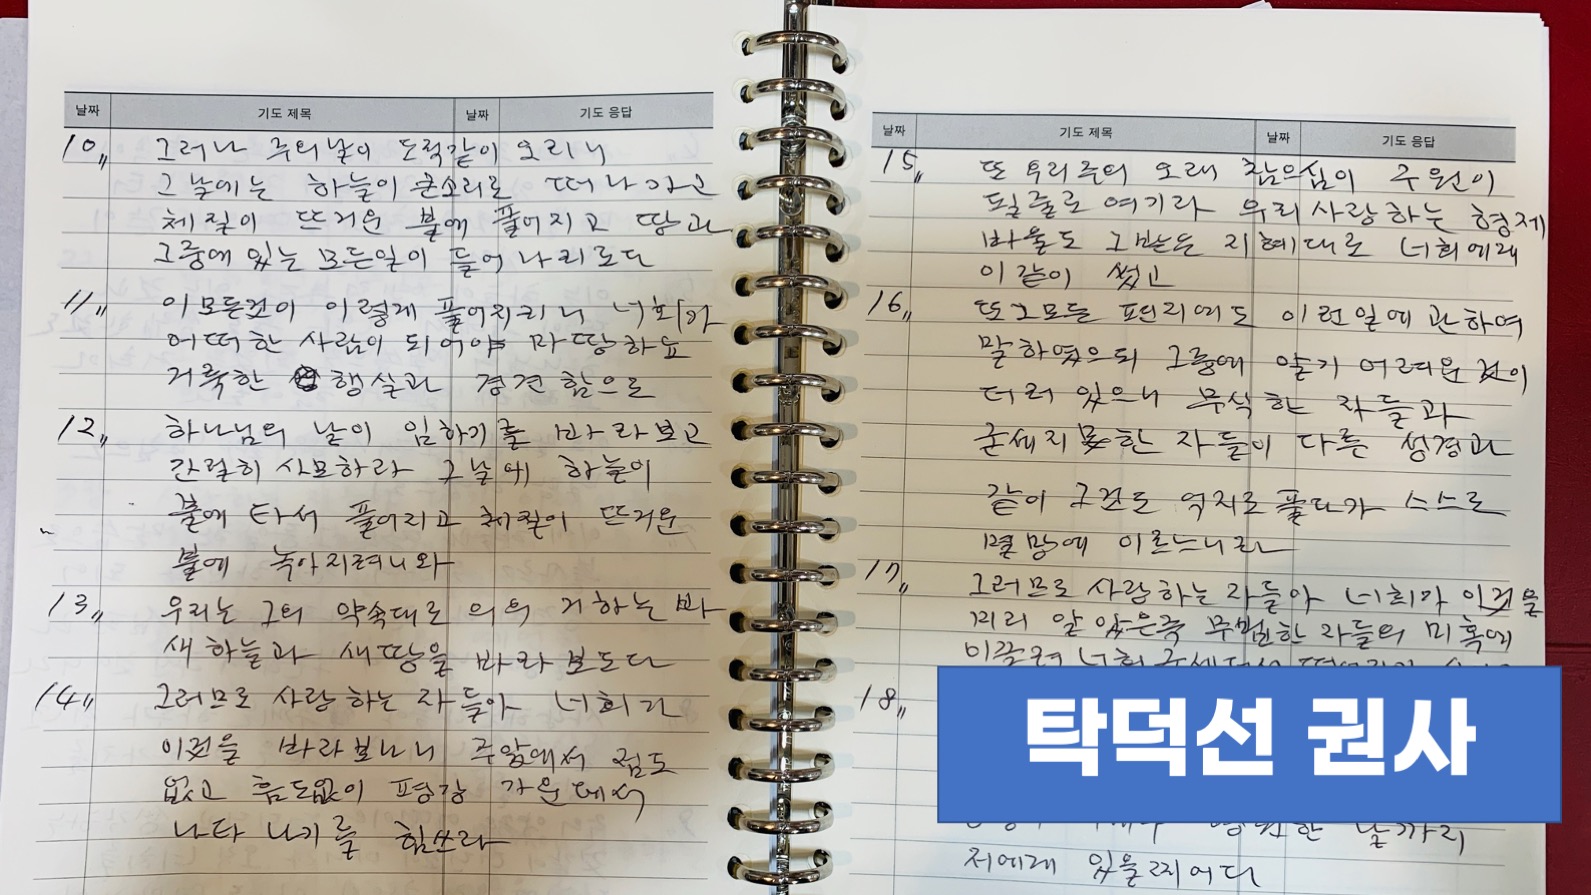 날짜 기도 제목 날짜 기도 응답
10,, 그러나 주의날이 도적같이 오리니
그 날에는 하늘이 큰소리로 떠나가고
체질이 뜨거운 불에 풀어지고 땅과
그중에 있는 모든일이 들어나리로다
11,, 이모든것이 이렇게 풀어지리니 너희가
어떠한 사람이 되어야 마땅하뇨
거룩한 행실과 경건함으로
12,, 하나님의 날이 임하기를 바라보고
간절히 사모하라 그날에 하늘이
불에 타서 풀어지고 체질이 뜨거운
불에 녹아지려니와
13,, 우리는 그의 약속대로 의의 거하는 바
새하늘과 새땅을 바라보도다
14,, 그러므로 사랑하는 자들아 너희가
이것을 바라보나니 주앞에서 점도
없고 흠도없이 평강 가운데서
나타나기를 힘쓰라
날짜 기도 제목 날짜 기도 응답
15,, 또 우리주의 오래 참으심이 구원이
될줄로 여기라 우리사랑하는 형제
바울도 그받은 지혜대로 너희에게
이같이 썼고
16,, 또그모든 편지에도 이런일에 관하여
말하였으되 그중에 알기 어려운것이
더러 있으니 무식한 자들과
굳세지못한 자들이 다른 성경과
같이 그것도 억지로 풀다가 스스로
멸망에 이르느니라
17,, 그러므로 사랑하는 자들아 너희가 이것을
미리 알았은즉 무법한자들의 미혹에
이끌려 너희
18,,
탁덕선 권사
영원한 날까지
저에게 있을지어다